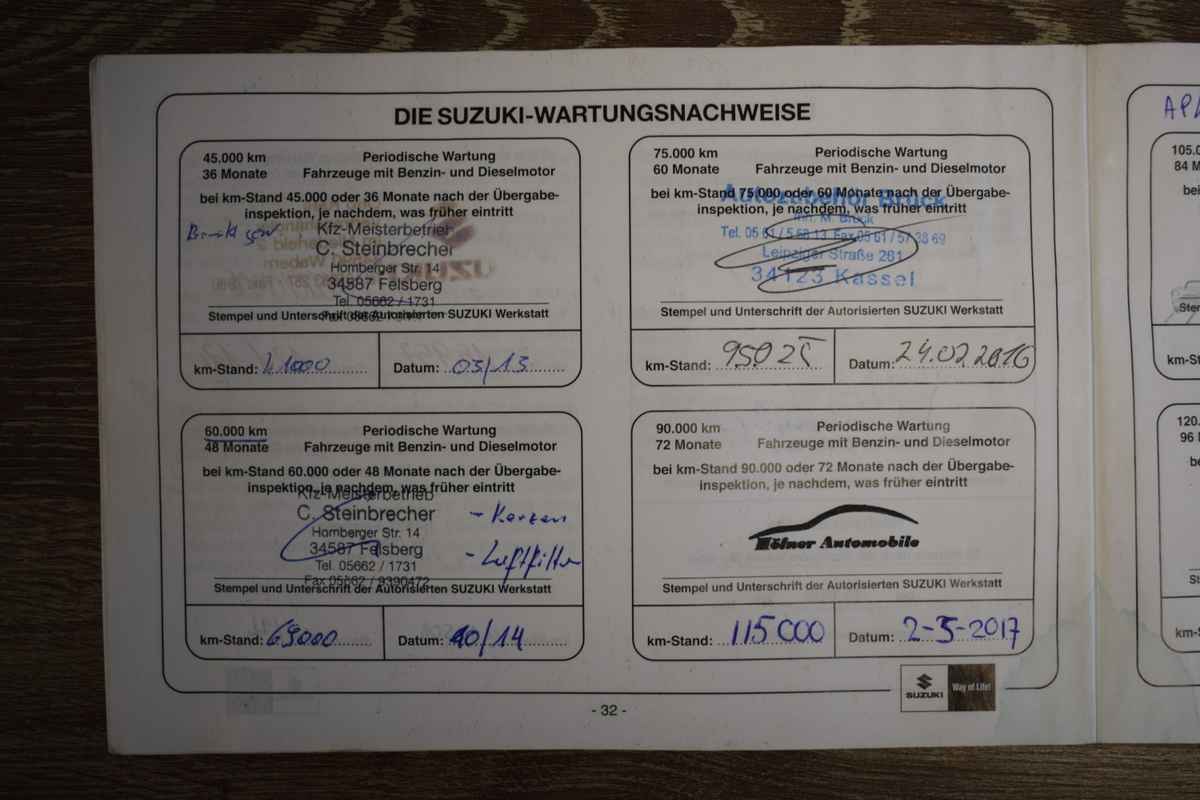 DIE SUZUKI-WARTUNGSNACHWEISE
45.000 km Periodische Wartung
36 Monate Fahrzeuge mit Benzin- und Dieselmotor
bei km-Stand 45.000 oder 36 Monate nach der Übergabe-
inspektion, je nachdem, was früher eintritt
Kfz-Meisterbetrieb
C. Steinbrecher
Homberger Str. 14
34587 Felsberg
Tel. 05662 / 1731
Stempel und Unterschrift der Autorisierten SUZUKI Werkstatt
km-Stand: Datum: 03/13
60.000 km Periodische Wartung
48 Monate Fahrzeuge mit Benzin- und Dieselmotor
bei km-Stand 60.000 oder 48 Monate nach der Übergabe-
inspektion, je nachdem, was früher eintritt
Kfz-Meisterbetrieb
C. Steinbrecher
- Kerzen
Homberger Str. 14
34587 Felsberg
- Luftfilter
Tel. 05662 / 1731
Fax 05662 / 9390472
Stempel und Unterschrift der Autorisierten SUZUKI Werkstatt
km-Stand: 69000 Datum: 10/14
75.000 km Periodische Wartung
60 Monate Fahrzeuge mit Benzin- und Dieselmotor
bei km-Stand 75.000 oder 60 Monate nach der Übergabe-
inspektion, je nachdem, was früher eintritt
Autozubehör Brück
Inh. M. Brück
Tel. 05 61 / 5 58 13 Fax 05 61 / 57 38 69
Leipziger Straße 261
34123 Kassel
Stempel und Unterschrift der Autorisierten SUZUKI Werkstatt
km-Stand: 95025 Datum: 24.02.2016
90.000 km Periodische Wartung
72 Monate Fahrzeuge mit Benzin- und Dieselmotor
bei km-Stand 90.000 oder 72 Monate nach der Übergabe-
inspektion, je nachdem, was früher eintritt
Höfner Automobile
Stempel und Unterschrift der Autorisierten SUZUKI Werkstatt
km-Stand: 115000 Datum: 2-5-2017
SUZUKI Way of Life!
- 32 -
105.0
84 M
bei
Ste
km-S
120.
96
be
S
km-